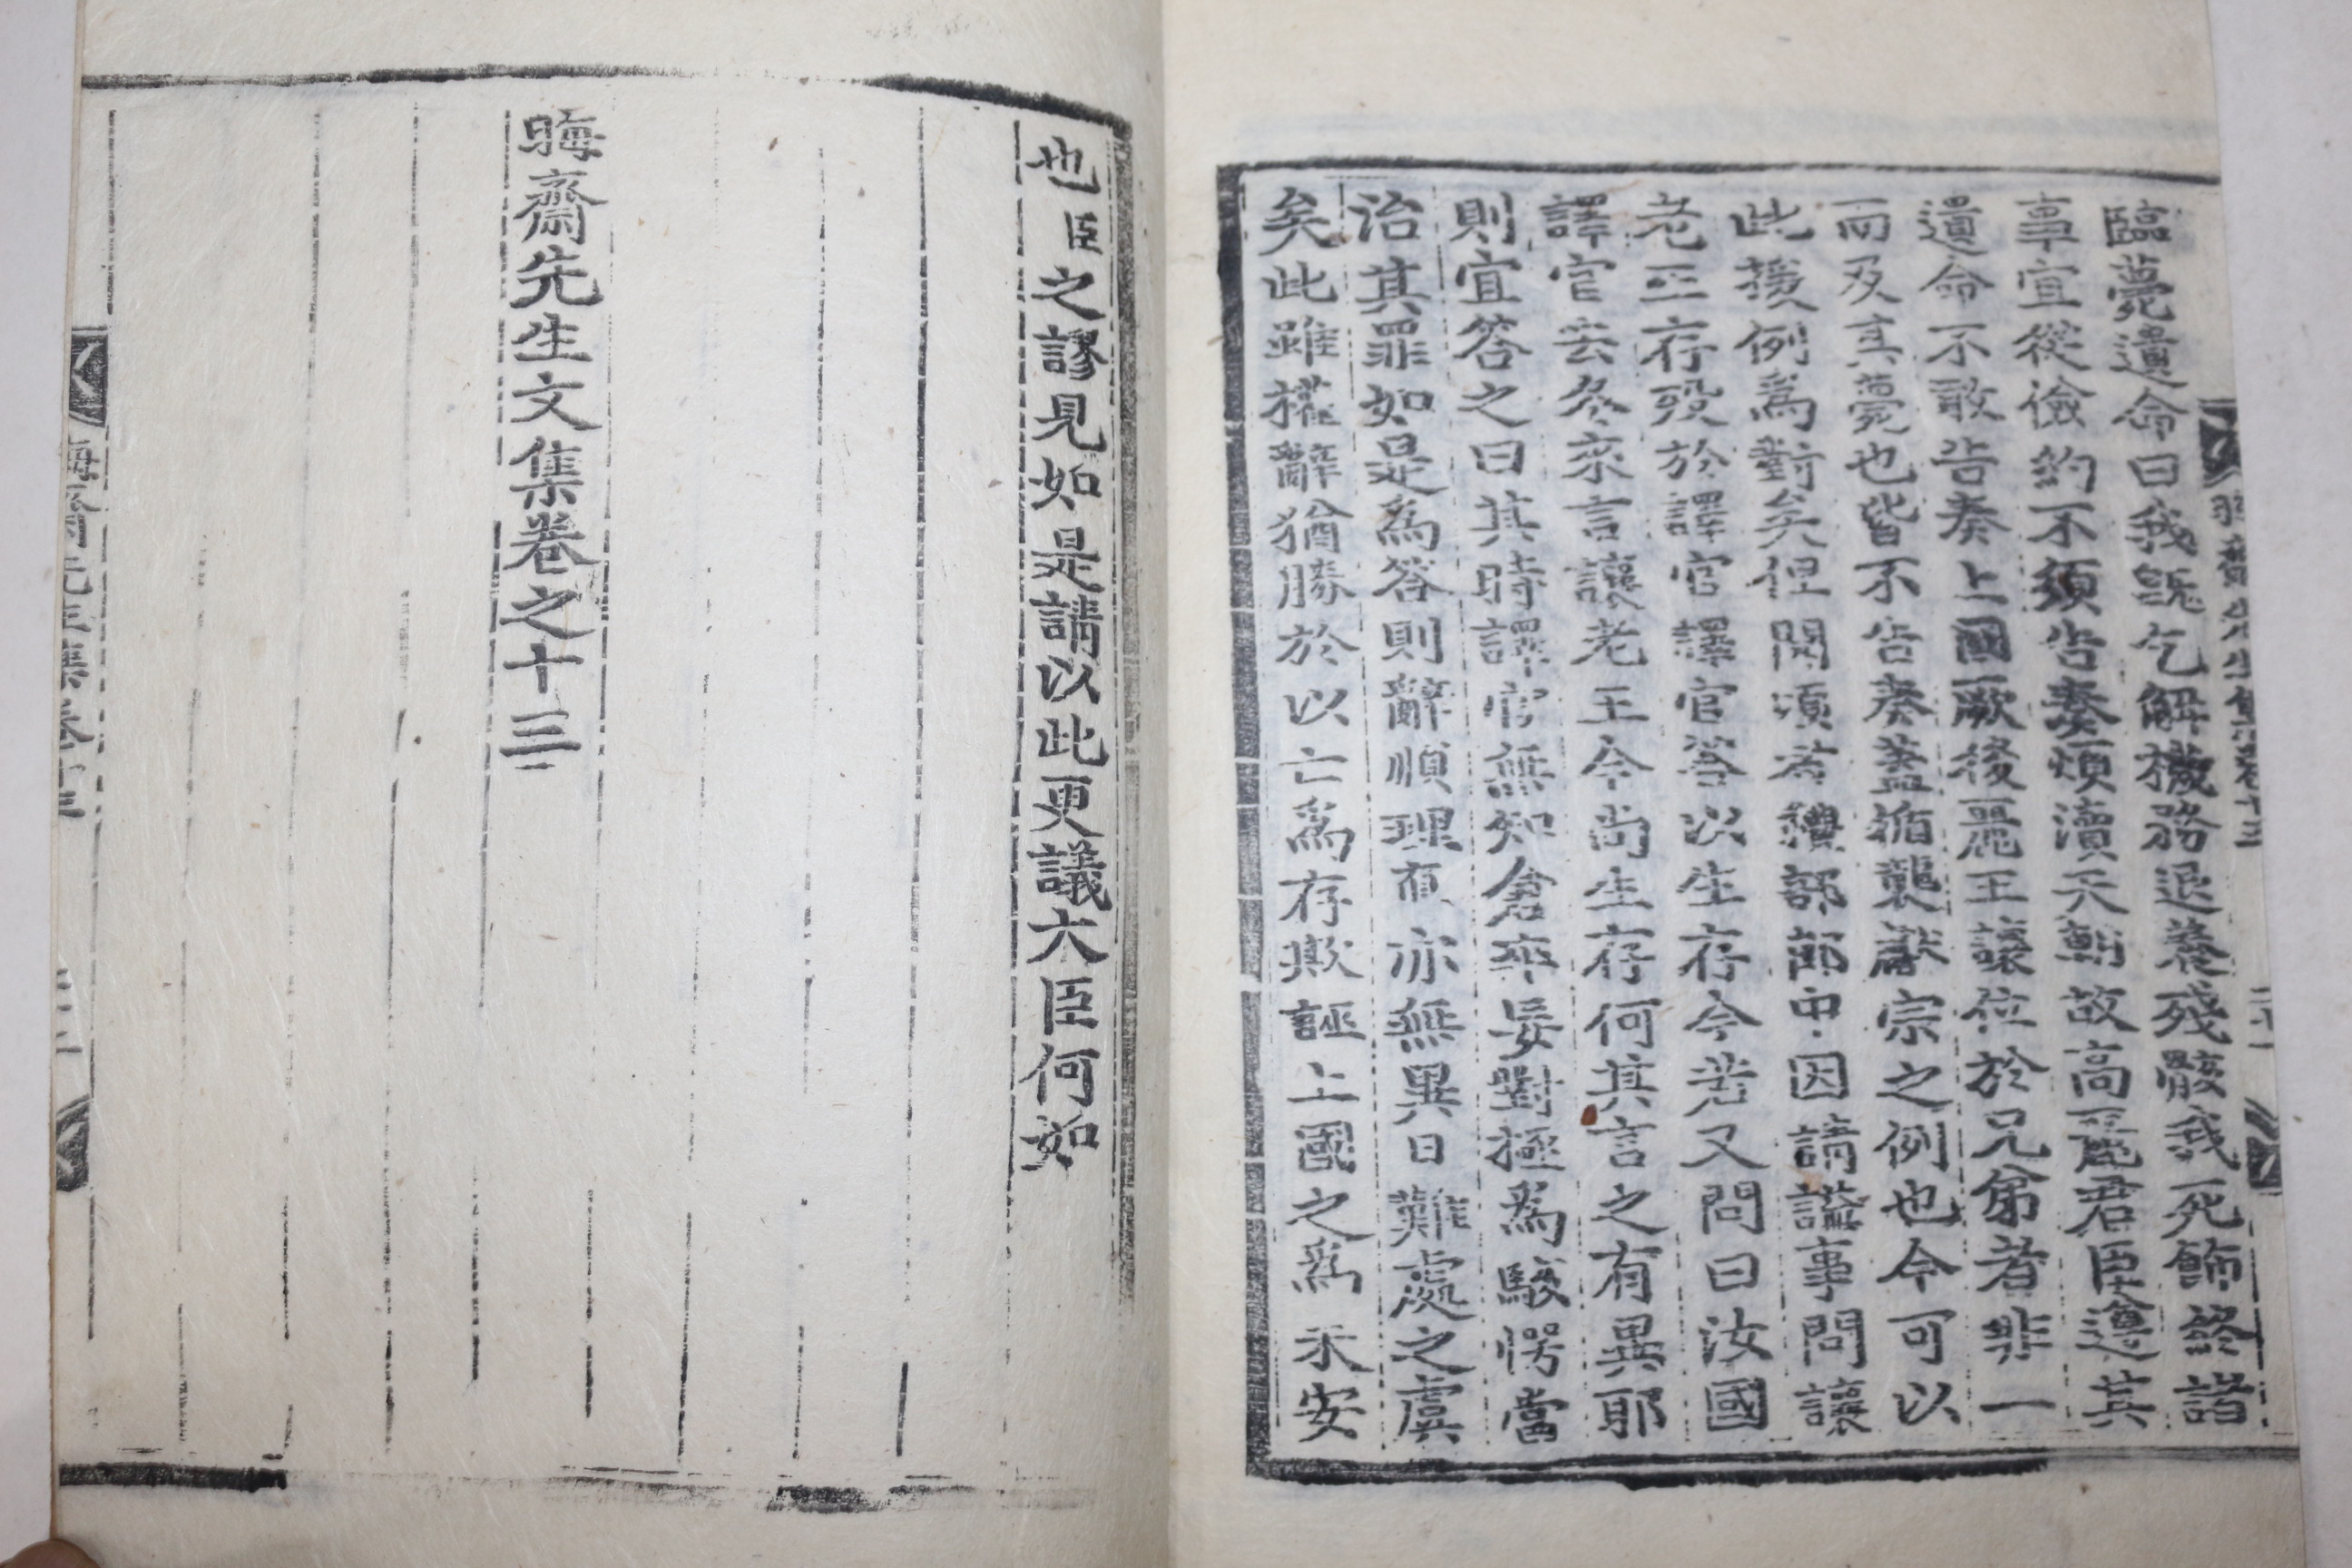 臨薨遺命曰我旣乞解機務退養殘骸我死飾終諸
事宜從儉約不須告奏煩瀆天朝故高麗君臣遵其
遺命不敢告奏上國厥後麗王讓位於兄弟者非一
而及其薨也皆不告奏蓋循襲獻宗之例也今可以
此援例爲對矣但聞頃者禮部郞中因請諡事問讓
老王存歿於譯官譯官答以生存今若又問曰汝國
譯官去冬來言讓老王今尚生存何其言之有異耶
則宜答之曰其時譯官無知倉卒妄對極爲駭愕當
治其罪如是爲答則辭順理直亦無異日難處之虞
矣此雖權辭猶勝於以亡爲存欺誣上國之爲未安
也臣之謬見如是請以此更議大臣何如
晦齋先生文集卷之十三
晦齋先生集卷十三
晦齋先生集卷十三